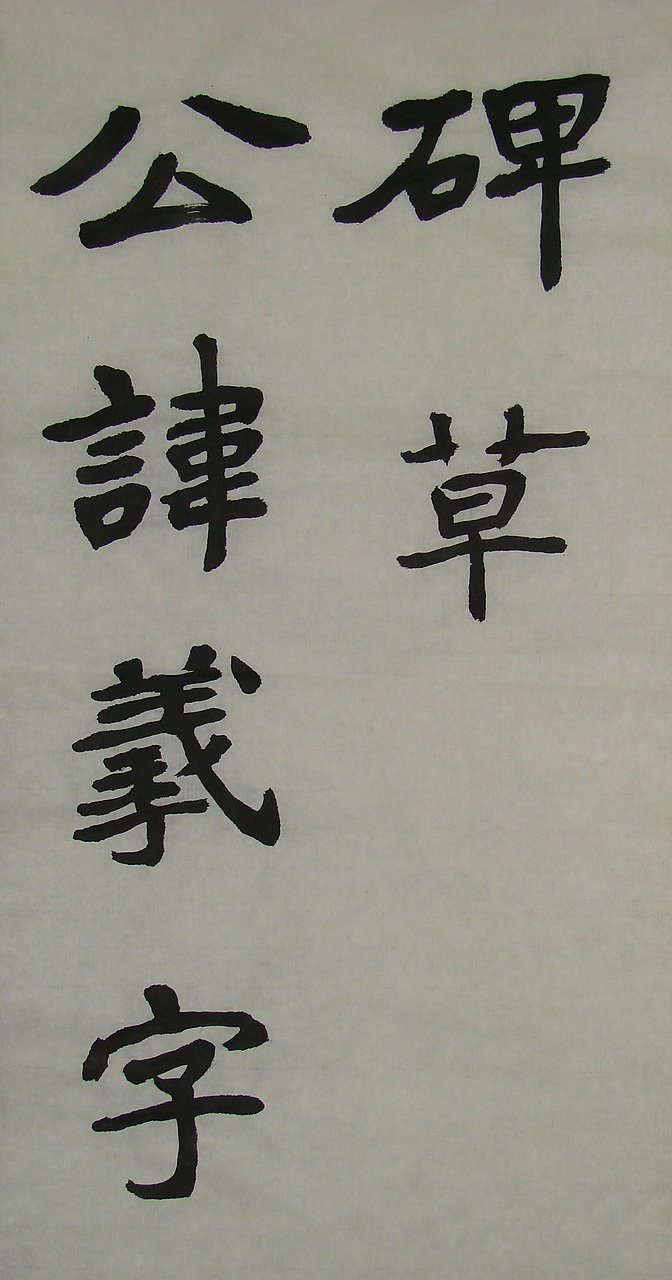 碑草
公諱羲字